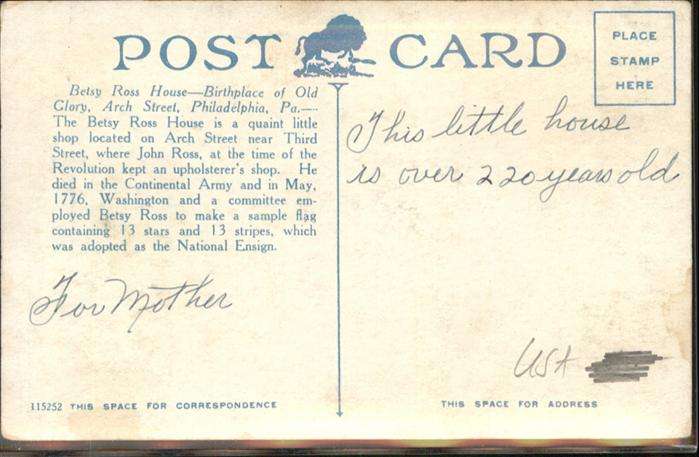 POST CARD
PLACE
STAMP
HERE
Betsy Ross House—Birthplace of Old
Glory, Arch Street, Philadelphia, Pa.—
The Betsy Ross House is a quaint little
shop located on Arch Street near Third
Street, where John Ross, at the time of the
Revolution kept an upholsterer's shop. He
died in the Continental Army and in May,
1776, Washington and a committee em-
ployed Betsy Ross to make a sample flag
containing 13 stars and 13 stripes, which
was adopted as the National Ensign.
For Mother
115252 THIS SPACE FOR CORRESPONDENCE
This little house
is over 220 years old
USA
THIS SPACE FOR ADDRESS